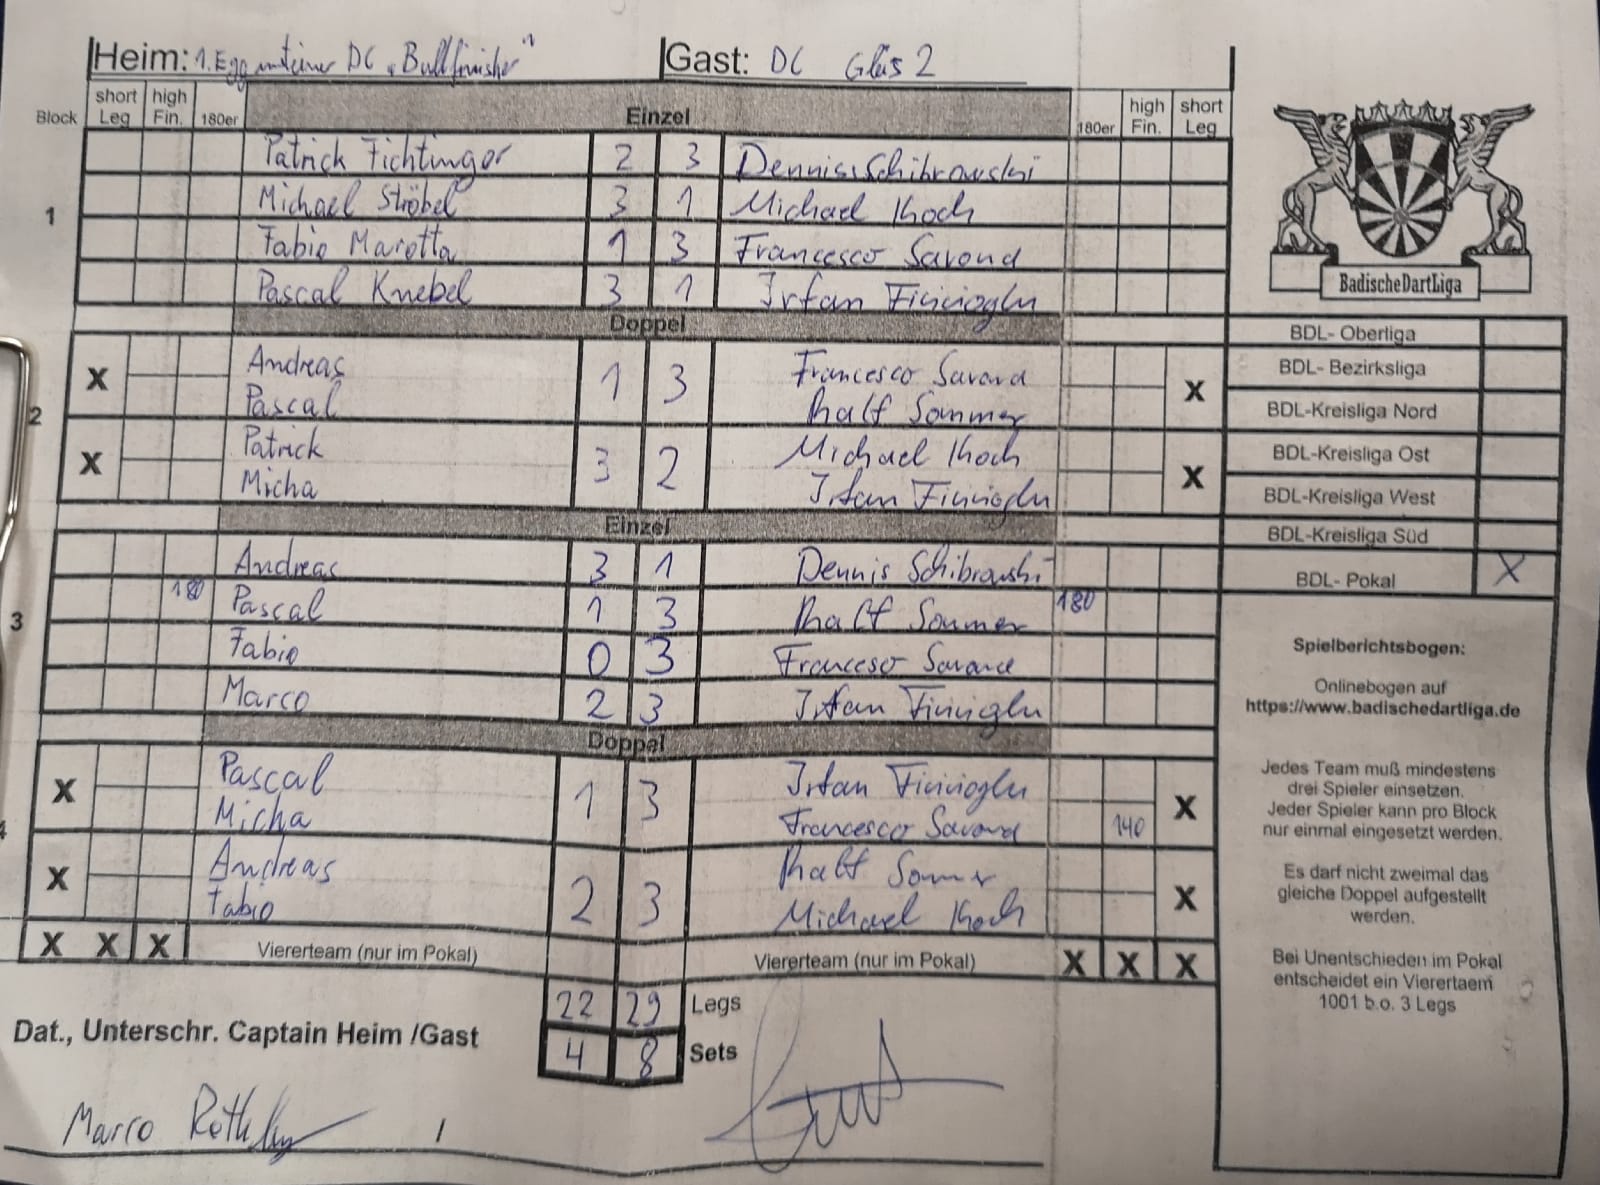 Heim: 1. Eggensteiner DC „Bullfinisher"
Gast: DC Glas 2
Block short Leg high Fin. 180er Einzel 180er high Fin. short Leg
Patrick Fichtinger 2 3 Dennis Schibrowski
1 Michael Ströbel 3 1 Michael Koch
Fabio Marotta 1 3 Francesco Savona
Pascal Knebel 3 1 Irfan
BadischeDartLiga
Doppel
Andreas Francesco Savona
X 1 3 X
Pascal Ralf Sommer
2
Patrick Michael Koch
X 3 2 X
Micha Irfan
Einzel
Andreas 3 1 Dennis Schibrowski
180 Pascal 1 3 Ralf Sommer 180
3
Fabio 0 3 Francesco Savona
Marco 2 3 Irfan
Doppel
Pascal Irfan
X 1 3 X
Micha Francesco Savona 140
4
Andreas Ralf Sommer
X 2 3 X
Fabio Michael Koch
X X X Viererteam (nur im Pokal) Viererteam (nur im Pokal) X X X
22 29 Legs
4 8 Sets
Dat., Unterschr. Captain Heim /Gast
Marco /
BDL- Oberliga
BDL- Bezirksliga
BDL-Kreisliga Nord
BDL-Kreisliga Ost
BDL-Kreisliga West
BDL-Kreisliga Süd
BDL- Pokal X
Spielberichtsbogen:
Onlinebogen auf
https://www.badischedartliga.de
Jedes Team muß mindestens
drei Spieler einsetzen.
Jeder Spieler kann pro Block
nur einmal eingesetzt werden.
Es darf nicht zweimal das
gleiche Doppel aufgestellt
werden.
Bei Unentschieden im Pokal
entscheidet ein Vierertaem
1001 b.o. 3 Legs